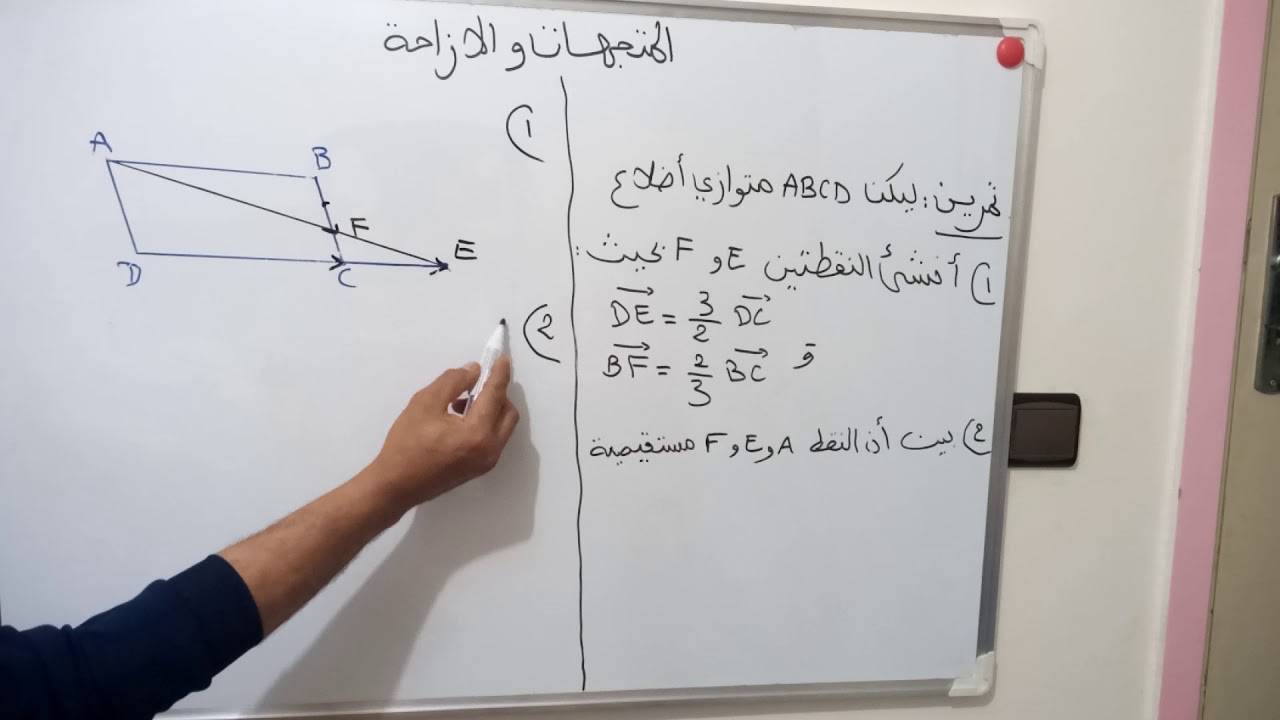 المتجهات و الازاحة
تمرين: ليكن ABCD متوازي أضلاع
1) أنشئ النقطتين E و F بحيث:
DE = 3/2 DC
و BF = 2/3 BC
2) بين أن النقط A و E و F مستقيمية
1)
A
B
F
E
D
C
2)